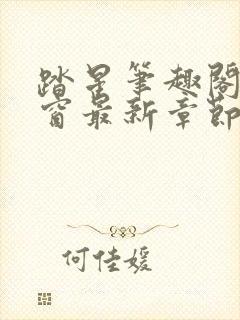 踏星笔趣阁
窗最新章节
何佳媛